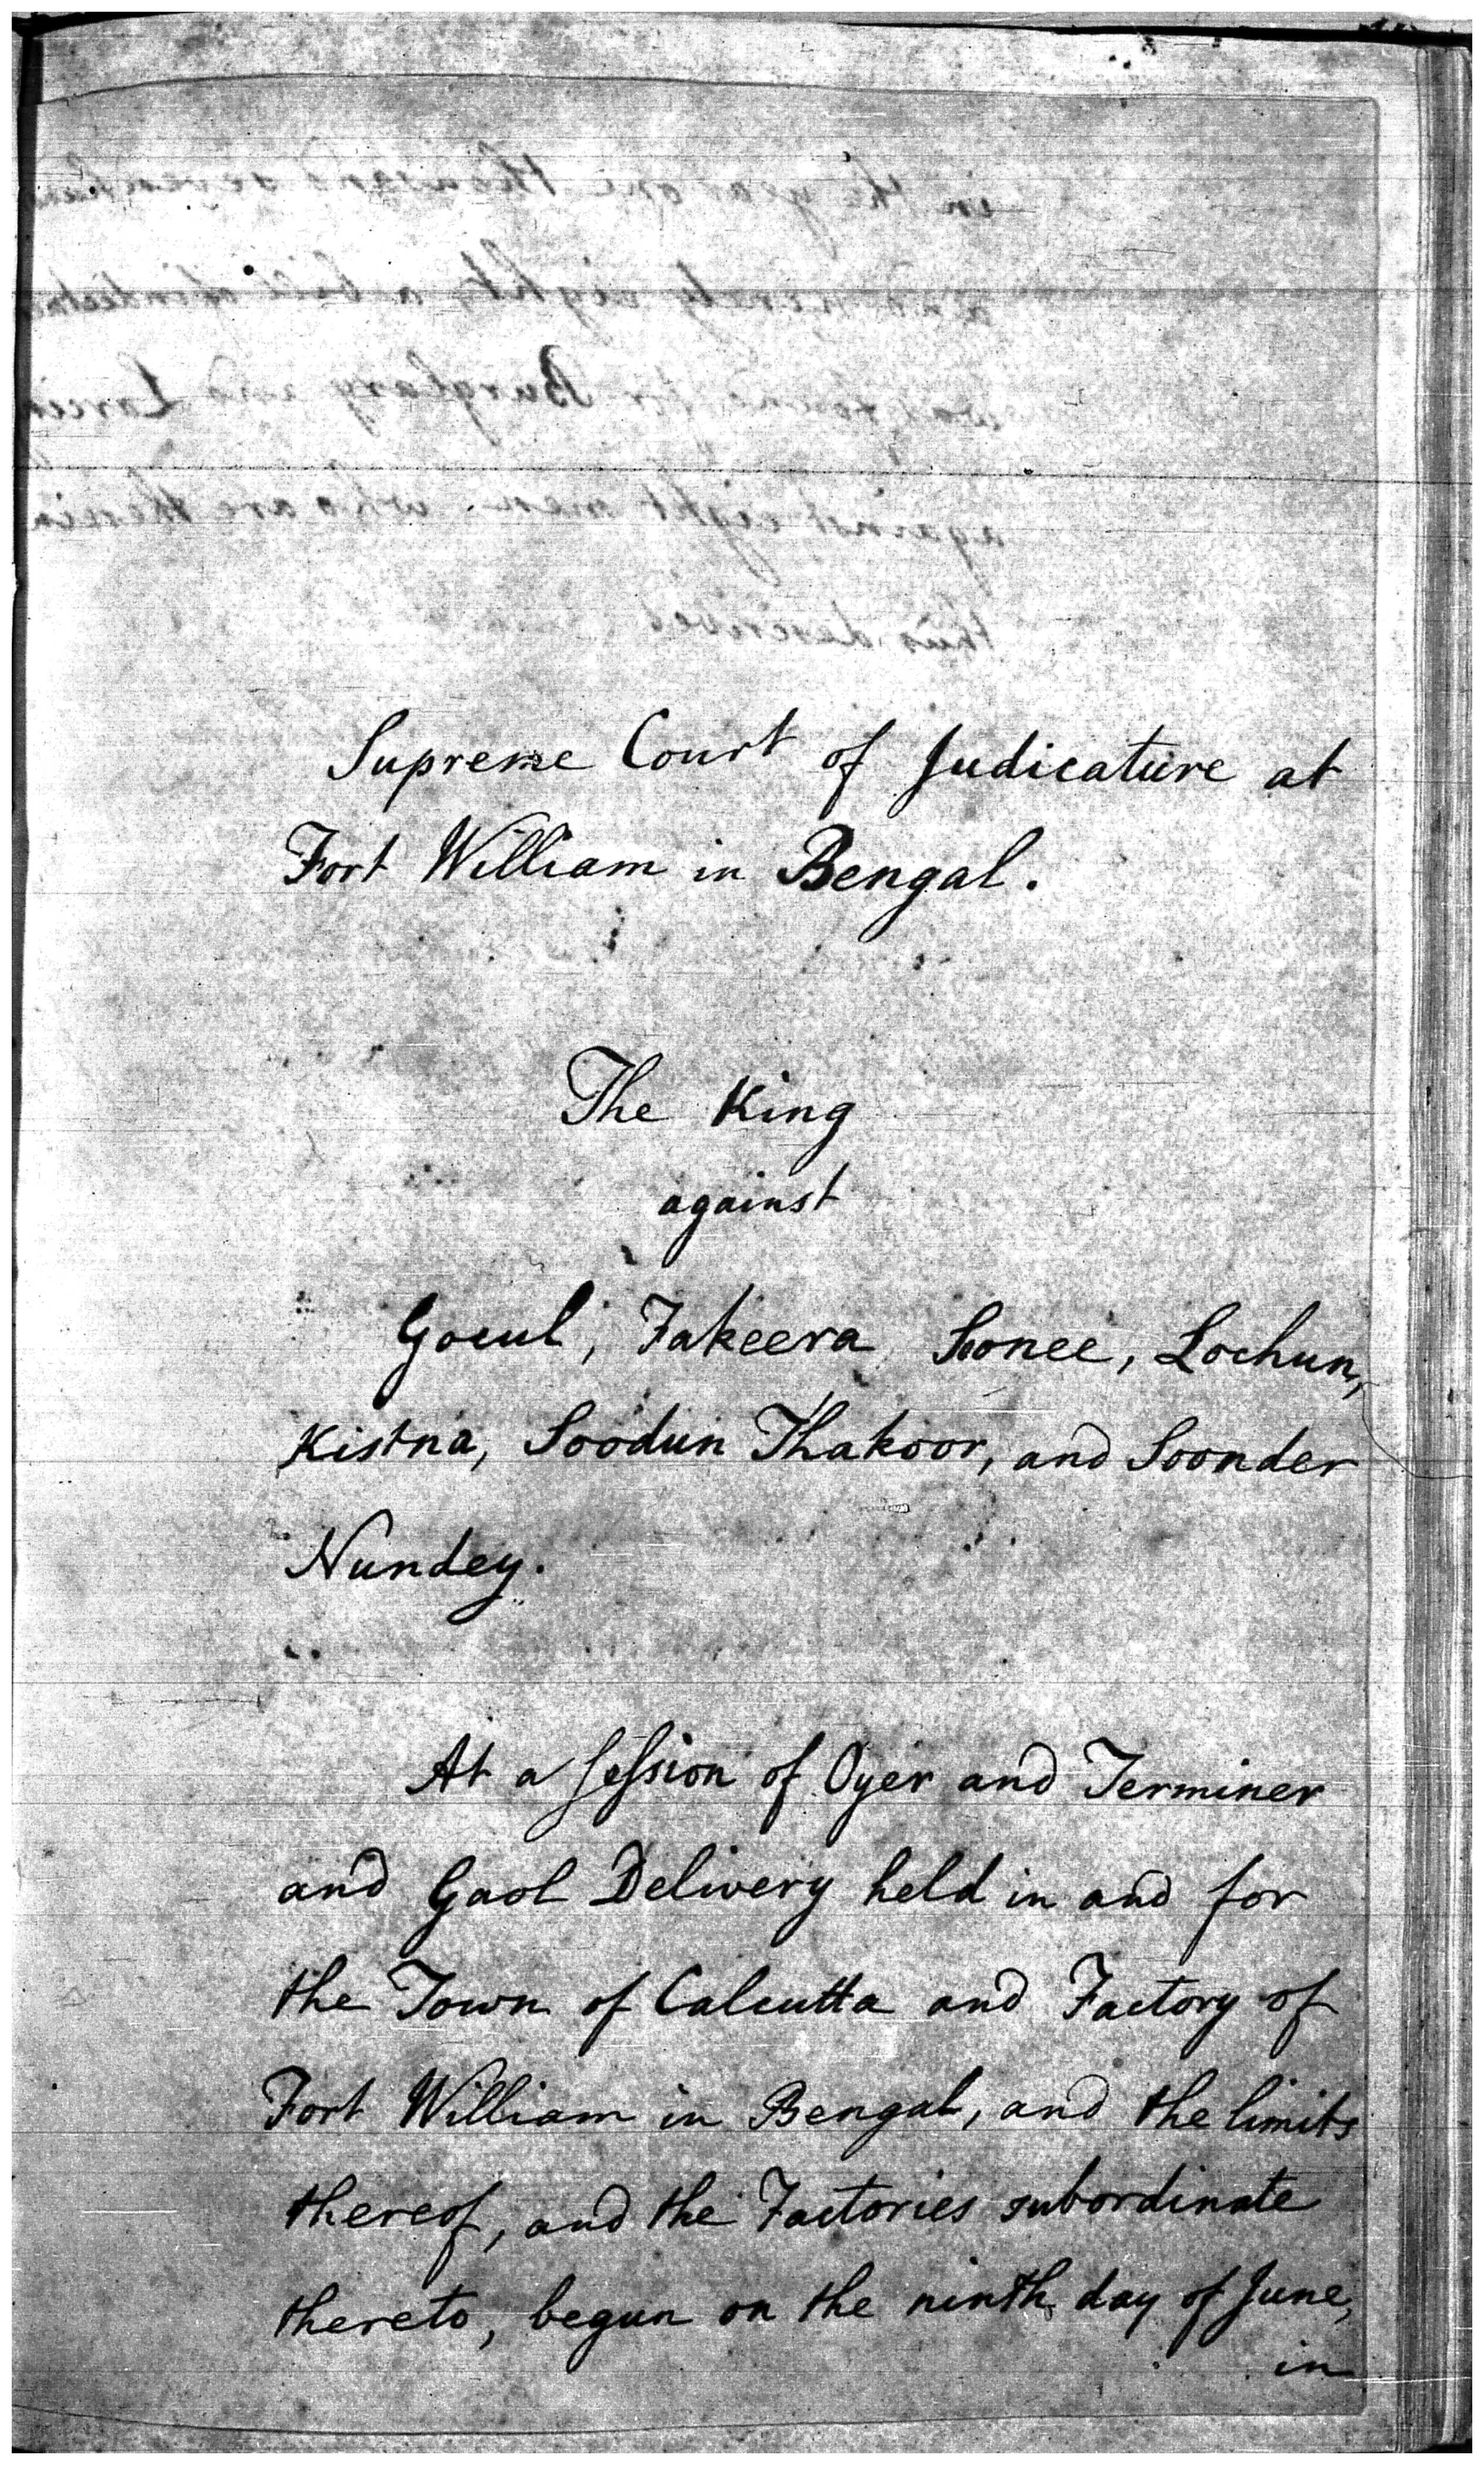 Supreme Court of Judicature at
Fort William in Bengal.
The King
against
Gocul, Fakeera Sonee, Lochun,
Kistna, Soodun Thakoor, and Soonder
Nundey.
At a session of Oyer and Terminer
and Gaol Delivery held in and for
the Town of Calcutta and Factory of
Fort William in Bengal, and the limits
thereof, and the Factories subordinate
thereto, begun on the ninth day of June,
in